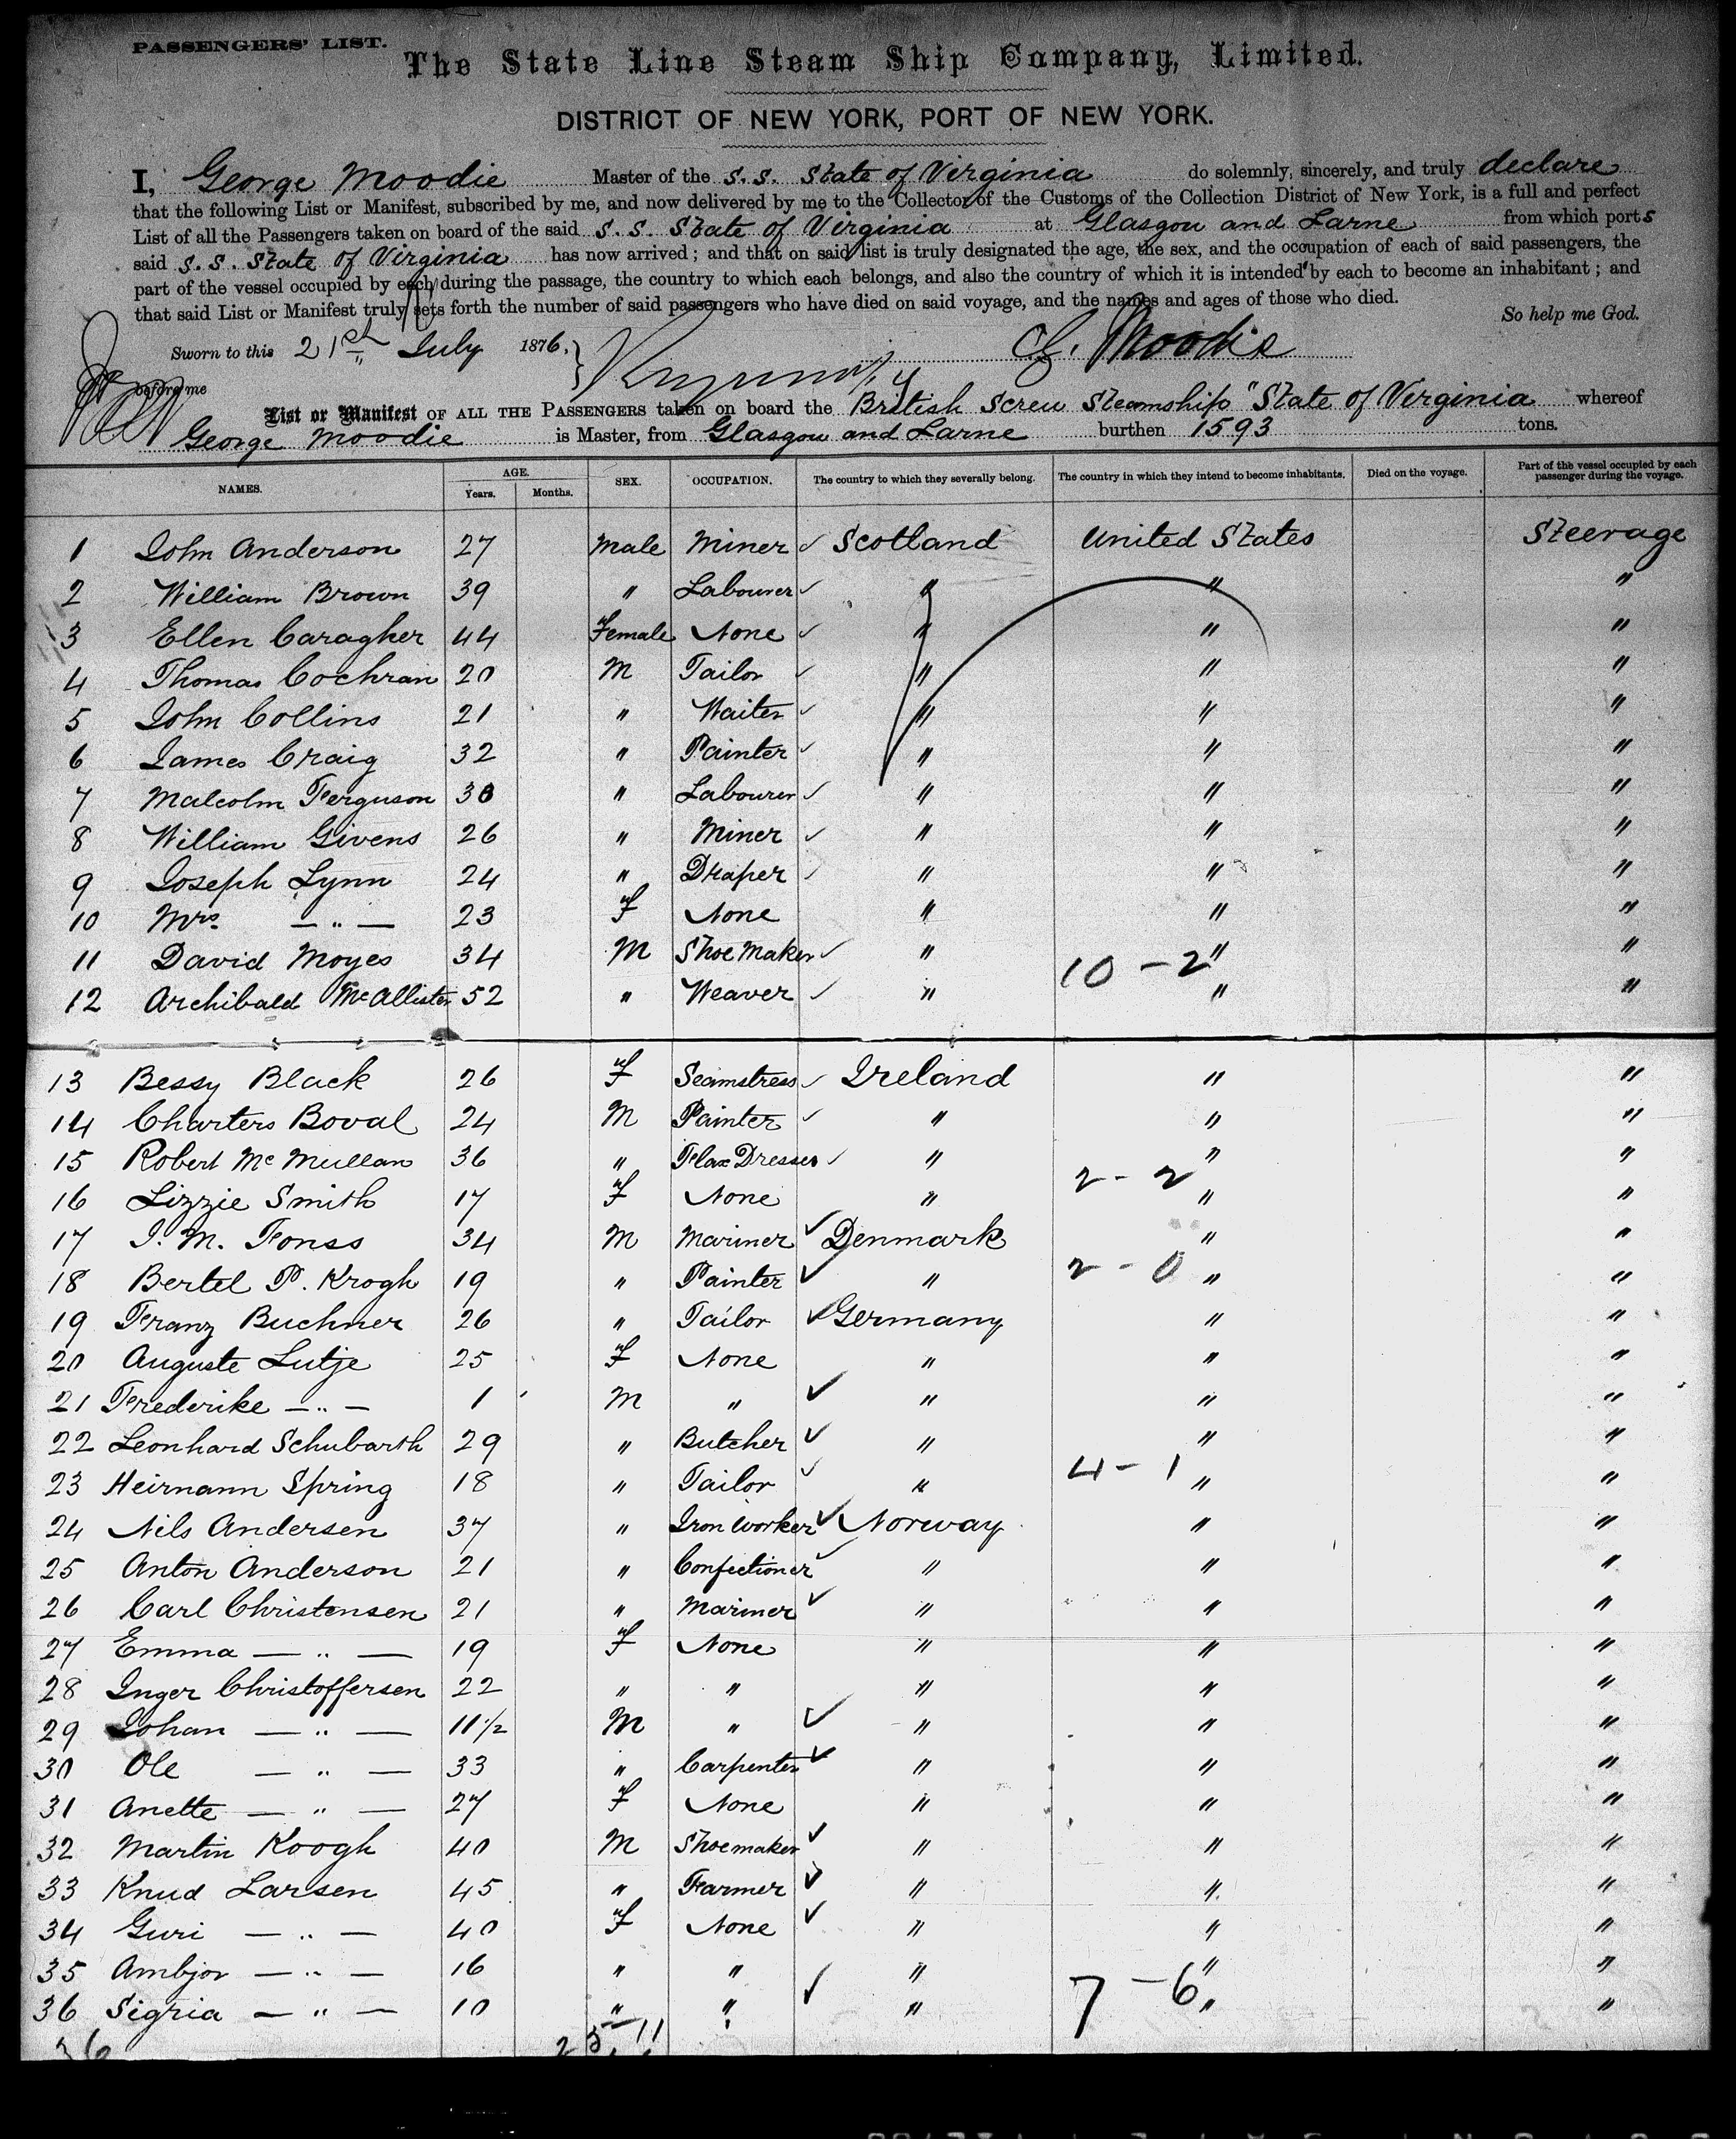 PASSENGERS' LIST.
The State Line Steam Ship Company, Limited.
DISTRICT OF NEW YORK, PORT OF NEW YORK.
I, George Moodie Master of the S.S. State of Virginia do solemnly, sincerely, and truly declare
that the following List or Manifest, subscribed by me, and now delivered by me to the Collector of the Customs of the Collection District of New York, is a full and perfect
List of all the Passengers taken on board of the said S.S. State of Virginia at Glasgow and Larne from which ports
said S.S. State of Virginia has now arrived; and that on said list is truly designated the age, the sex, and the occupation of each of said passengers, the
part of the vessel occupied by each during the passage, the country to which each belongs, and also the country of which it is intended by each to become an inhabitant; and
that said List or Manifest truly sets forth the number of said passengers who have died on said voyage, and the names and ages of those who died.
So help me God.
Sworn to this 21st July 1876, G. Moodie
before me
List or Manifest OF ALL THE PASSENGERS taken on board the British Screw Steamship "State of Virginia whereof
George Moodie is Master, from Glasgow and Larne burthen 1593 tons.
NAMES. AGE. Years. Months. SEX. OCCUPATION. The country to which they severally belong. The country in which they intend to become inhabitants. Died on the voyage. Part of the vessel occupied by each passenger during the voyage.
1 John Anderson 27 Male Miner Scotland United States Steerage
2 William Brown 39 " Labourer " " "
3 Ellen Caragher 44 Female None " " "
4 Thomas Cochran 20 M Tailor " " "
5 John Collins 21 " Waiter " " "
6 James Craig 32 " Painter " " "
7 Malcolm Ferguson 30 " Labourer " " "
8 William Givens 26 " Miner " " "
9 Joseph Lynn 24 " Draper " " "
10 Mrs. — " — 23 F None " " "
11 David Moyes 34 M Shoe Maker " " "
10 - 2
12 Archibald McAllister 52 " Weaver " " "
13 Bessy Black 26 F Seamstress Ireland " "
14 Charters Boval 24 M Painter " " "
15 Robert McMullan 36 " Flax Dresser " " "
2 - 2
16 Lizzie Smith 17 F None " " "
17 J. M. Fonss 34 M Mariner Denmark " "
18 Bertel P. Krogh 19 " Painter " 2 - 0 " "
19 Franz Buchner 26 " Tailor Germany " "
20 Auguste Lutje 25 F None " " "
21 Frederike — " — 1 M " " " "
22 Leonhard Schubarth 29 " Butcher " " "
4 - 1
23 Heirmann Spring 18 " Tailor " " "
24 Nils Andersen 37 " Iron Worker Norway " "
25 Anton Anderson 21 " Confectioner " " "
26 Carl Christensen 21 " Mariner " " "
27 Emma — " — 19 F None " " "
28 Inger Christoffersen 22 " " " " "
29 Johan — " — 11 1/2 M " " " "
30 Ole — " — 33 " Carpenter " " "
31 Anette — " — 27 F None " " "
32 Martin Koogh 40 M Shoemaker " " "
33 Knud Larsen 45 " Farmer " " "
34 Guri — " — 40 F None " " "
35 Ambjor — " — 16 " " " " "
7 - 6
36 Sigria — " — 10 " " " " "
36 25 - 11